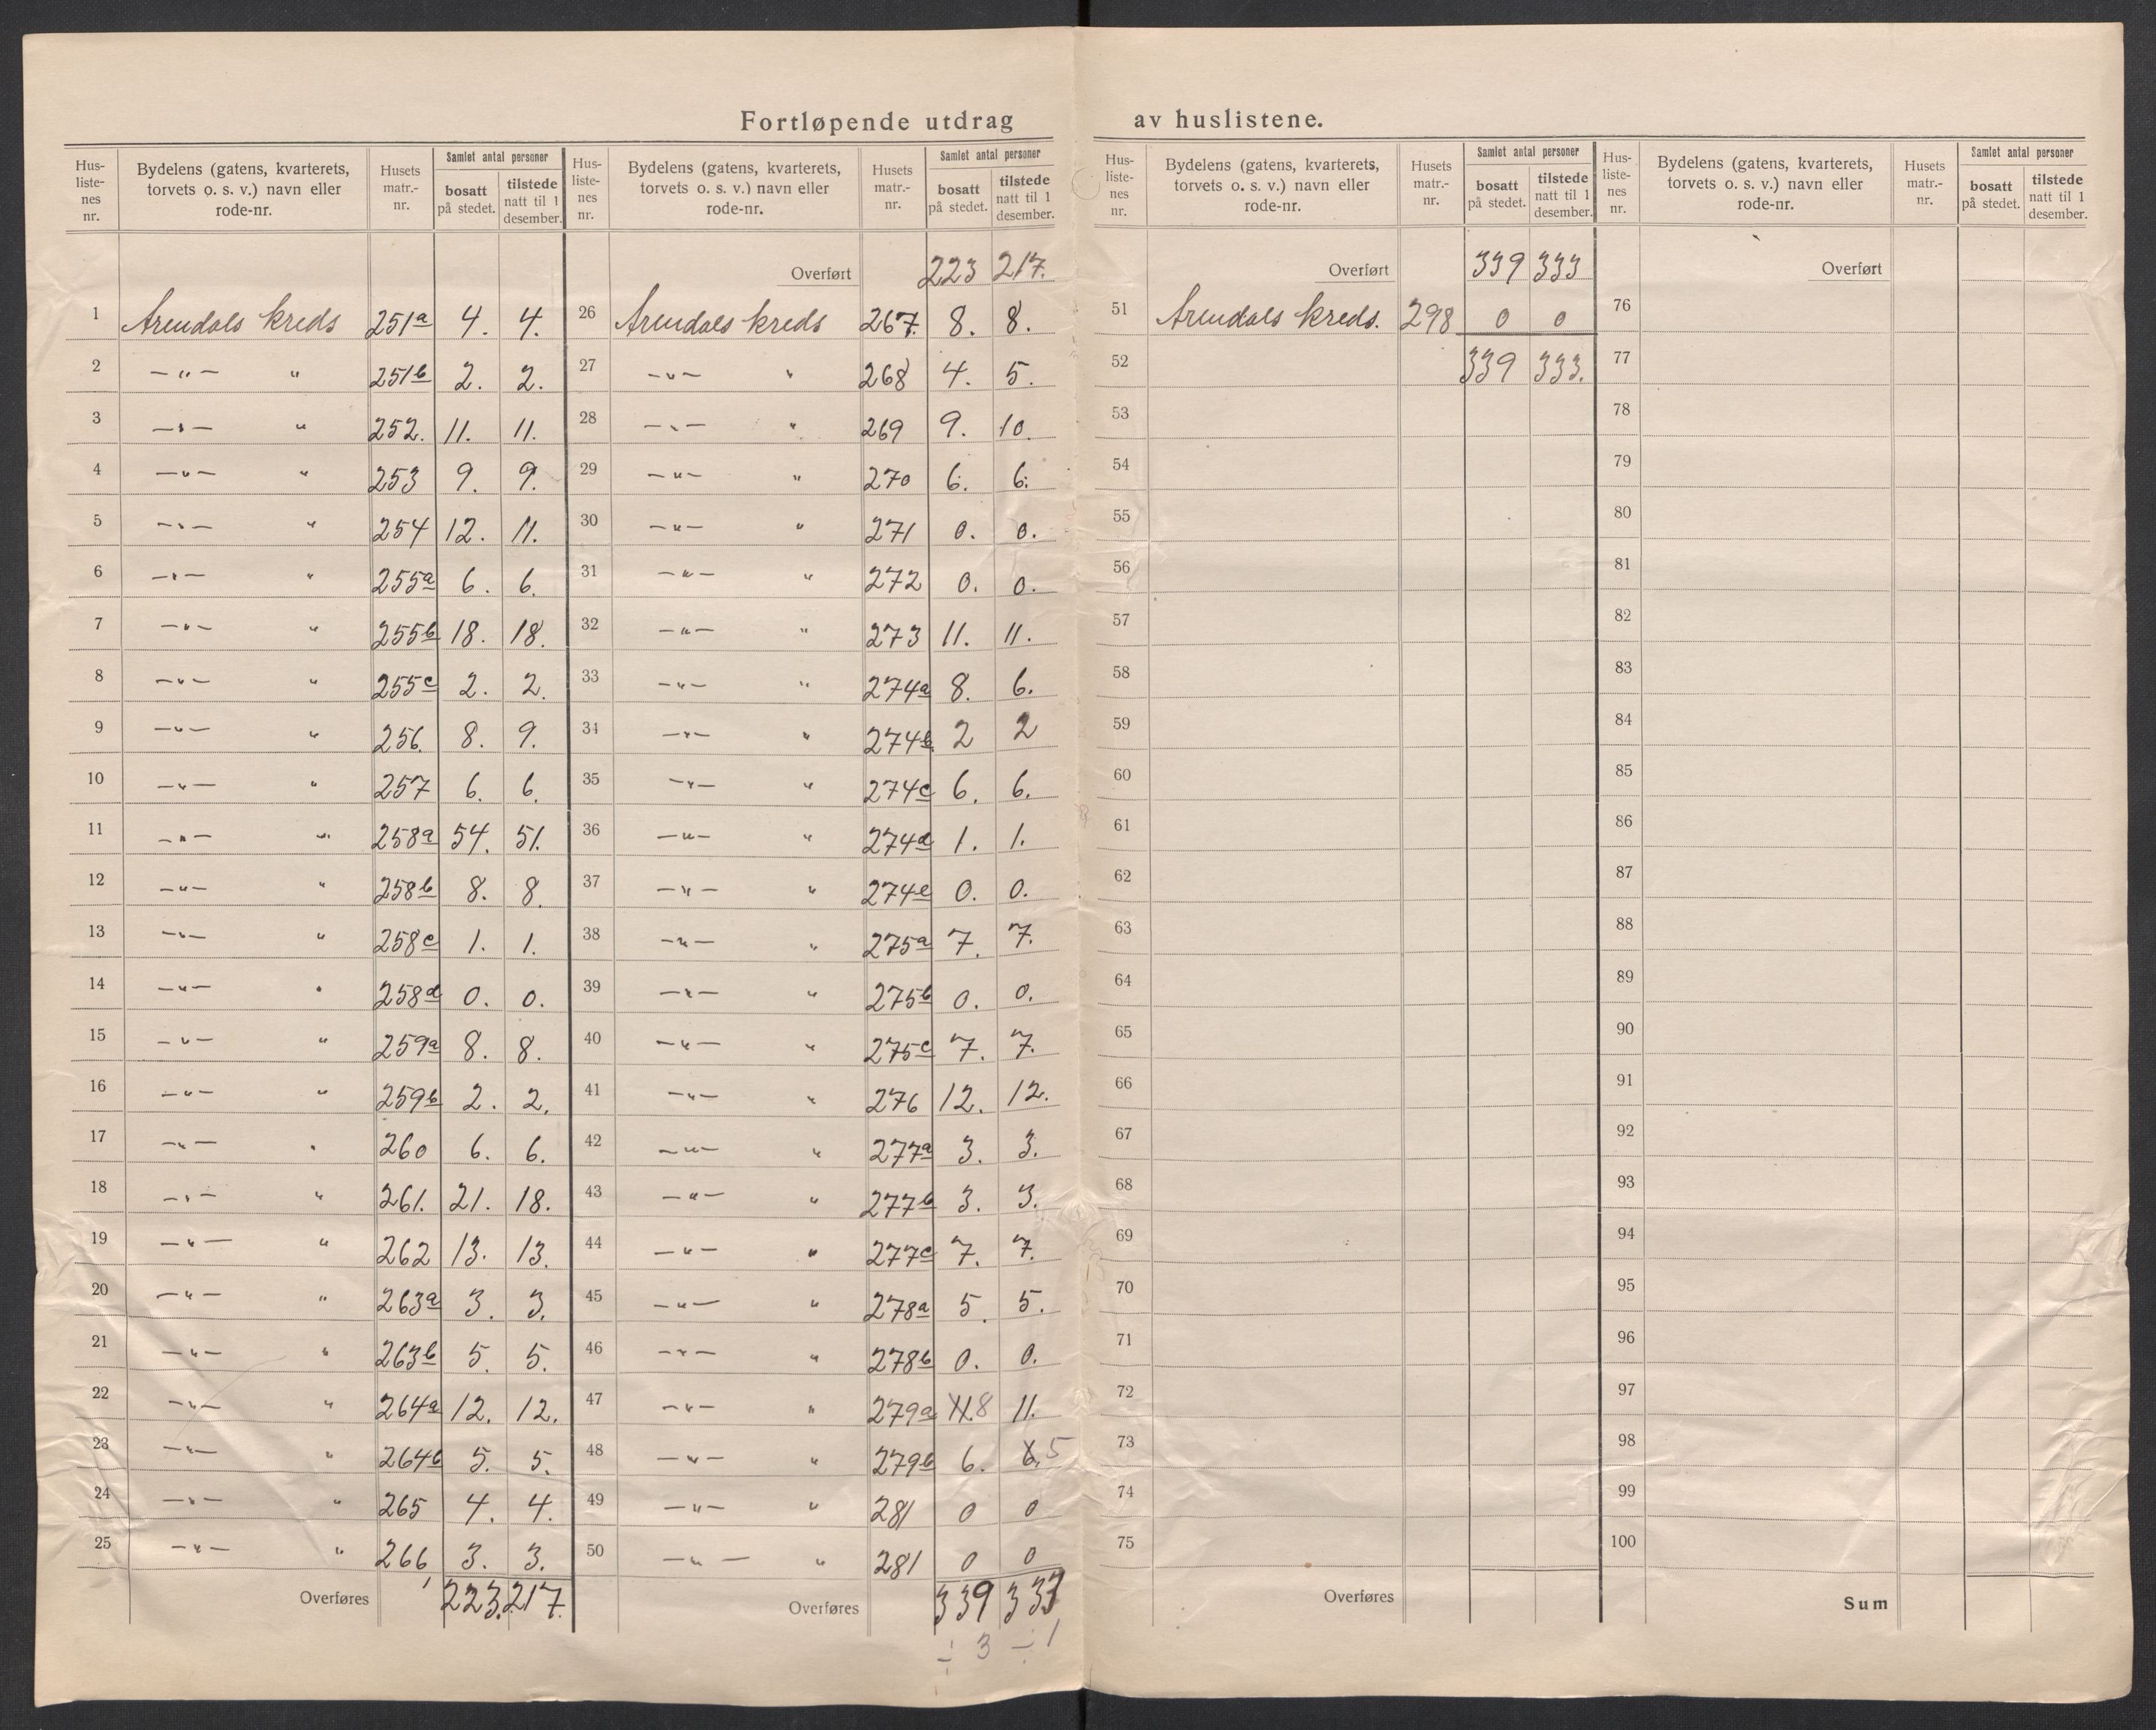 Fortløpende utdrag av huslistene.
Hus-liste-nes nr. | Bydelens (gatens, kvarterets, torvets o. s. v.) navn eller rode-nr. | Husets matr.-nr. | Samlet antal personer bosatt på stedet. | tilstede natt til 1 desember.
1 Arendals kreds 251a 4. 4.
2 —"— " 251b 2. 2.
3 —"— " 252. 11. 11.
4 —"— " 253 9. 9.
5 —"— " 254 12. 11.
6 —"— " 255a 6. 6.
7 —"— " 255b 18. 18.
8 —"— " 255c 2. 2.
9 —"— " 256. 8. 9.
10 —"— " 257 6. 6.
11 —"— " 258a 54. 51.
12 —"— " 258b 8. 8.
13 —"— " 258c 1. 1.
14 —"— " 258d 0. 0.
15 —"— " 259a 8. 8.
16 —"— " 259b 2. 2.
17 —"— " 260 6. 6.
18 —"— " 261. 21. 18.
19 —"— " 262 13. 13.
20 —"— " 263a 3. 3.
21 —"— " 263b 5. 5.
22 —"— " 264a 12. 12.
23 —"— " 264b 5. 5.
24 —"— " 265 4. 4.
25 —"— " 266, 3. 3.
Overføres 223. 217.
Hus-liste-nes nr. | Bydelens (gatens, kvarterets, torvets o. s. v.) navn eller rode-nr. | Husets matr.-nr. | Samlet antal personer bosatt på stedet. | tilstede natt til 1 desember.
Overført 223 217.
26 Arendals kreds 267. 8. 8.
27 —"— " 268 4. 5.
28 —"— " 269 9. 10.
29 —"— " 270 6. 6.
30 —"— " 271 0. 0.
31 —"— " 272 0. 0.
32 —"— " 273 11. 11.
33 —"— " 274a 8. 6.
34 —"— " 274b 2 2
35 —"— " 274c 6. 6.
36 —"— " 274d 1. 1.
37 —"— " 274e 0. 0.
38 —"— " 275a 7. 7.
39 —"— " 275b 0. 0.
40 —"— " 275c 7. 7.
41 —"— " 276 12. 12.
42 —"— " 277a 3. 3.
43 —"— " 277b 3. 3.
44 —"— " 277c 7. 7.
45 —"— " 278a 5. 5.
46 —"— " 278b 0. 0.
47 —"— " 279a 11. 8 11.
48 —"— " 279b 6. 6. 5
49 —"— " 281 0 0
50 —"— " 281 0 0
Overføres 339 333
÷ 3 ÷ 1
Hus-liste-nes nr. | Bydelens (gatens, kvarterets, torvets o. s. v.) navn eller rode-nr. | Husets matr.-nr. | Samlet antal personer bosatt på stedet. | tilstede natt til 1 desember.
Overført 339 333
51 Arendals kreds. 298 0 0
52 339 333.
53
54
55
56
57
58
59
60
61
62
63
64
65
66
67
68
69
70
71
72
73
74
75
Overføres
Hus-liste-nes nr. | Bydelens (gatens, kvarterets, torvets o. s. v.) navn eller rode-nr. | Husets matr.-nr. | Samlet antal personer bosatt på stedet. | tilstede natt til 1 desember.
Overført
76
77
78
79
80
81
82
83
84
85
86
87
88
89
90
91
92
93
94
95
96
97
98
99
100
Sum